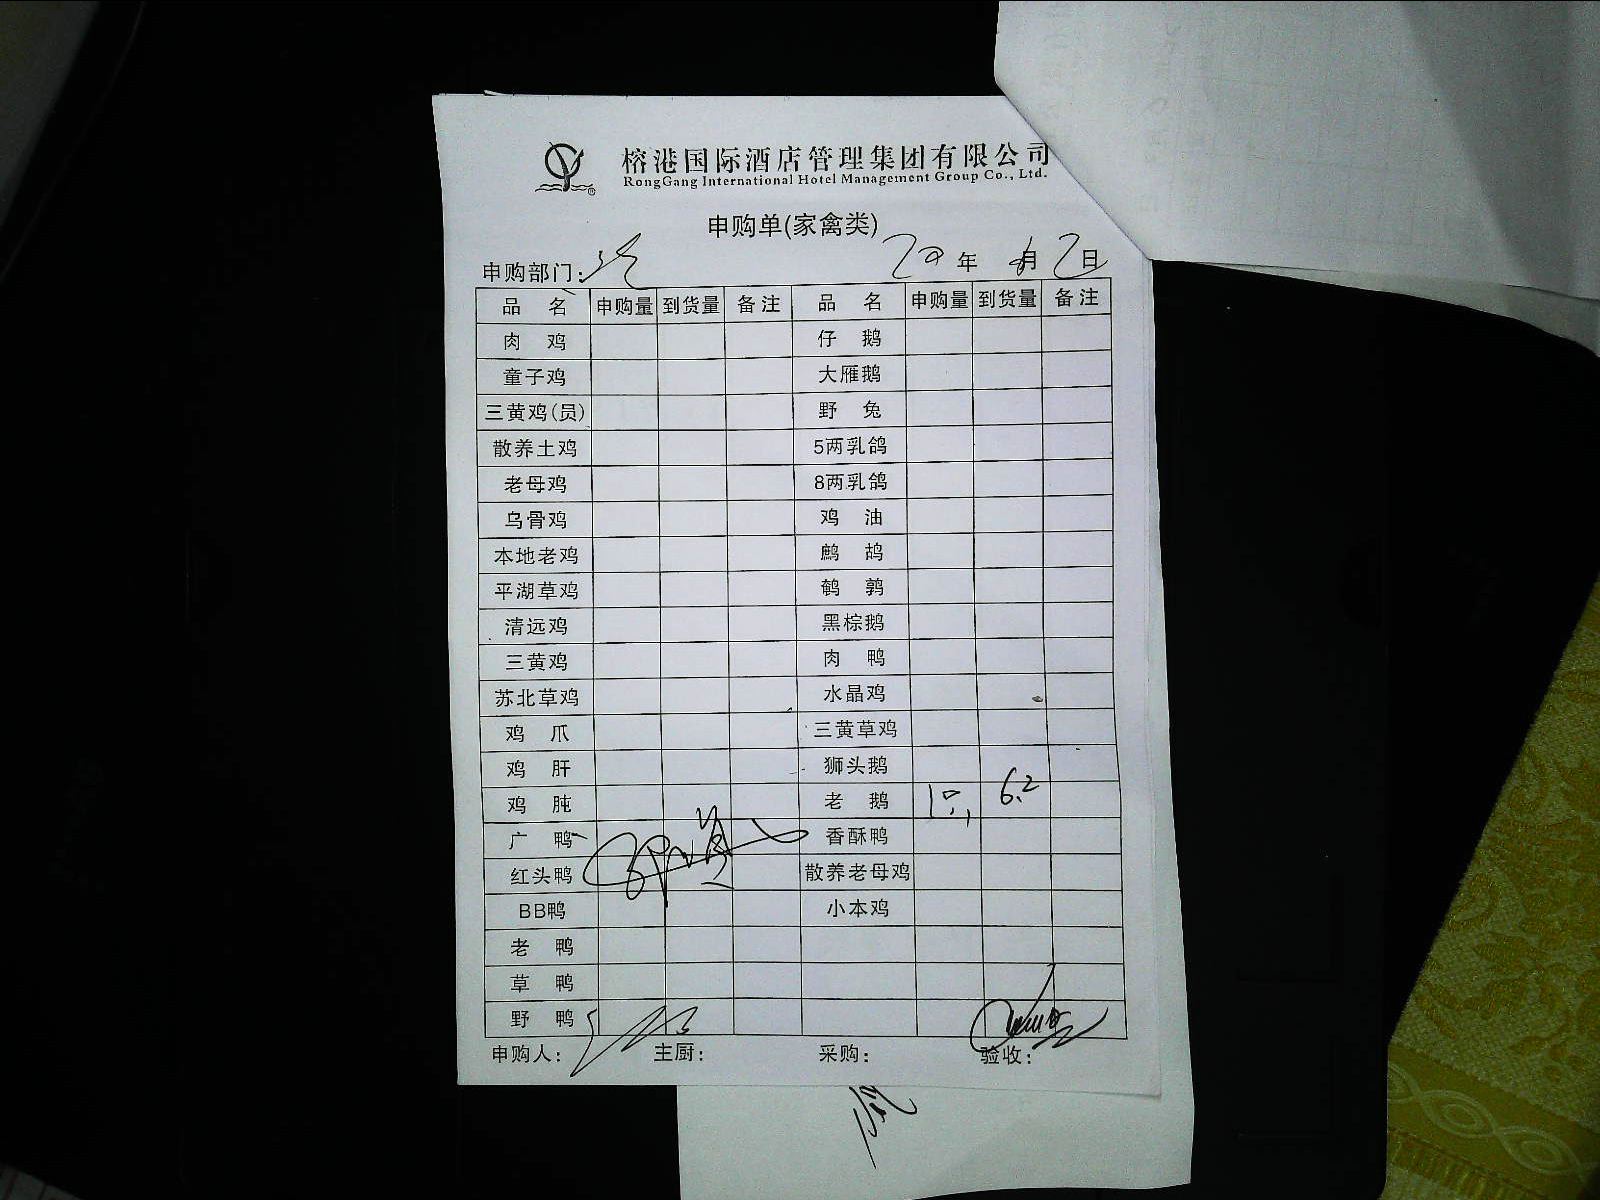 榕港国际酒店管理集团有限公司
RongGang International Hotel Management Group Co., Ltd.
申购单(家禽类)
申购部门: 年 月 日
品 名 申购量 到货量 备注 品 名 申购量 到货量 备注
肉 鸡 仔 鹅
童子鸡 大雁鹅
三黄鸡(员) 野 兔
散养土鸡 5两乳鸽
老母鸡 8两乳鸽
乌骨鸡 鸡 油
本地老鸡 鹧 鸪
平湖草鸡 鹌 鹑
清远鸡 黑棕鹅
三黄鸡 肉 鸭
苏北草鸡 水晶鸡
鸡 爪 三黄草鸡
鸡 肝 狮头鹅
鸡 肫 老 鹅 1只 6.2
广 鸭 香酥鸭
红头鸭 散养老母鸡
BB鸭 小本鸡
老 鸭
草 鸭
野 鸭
申购人: 主厨: 采购: 验收: